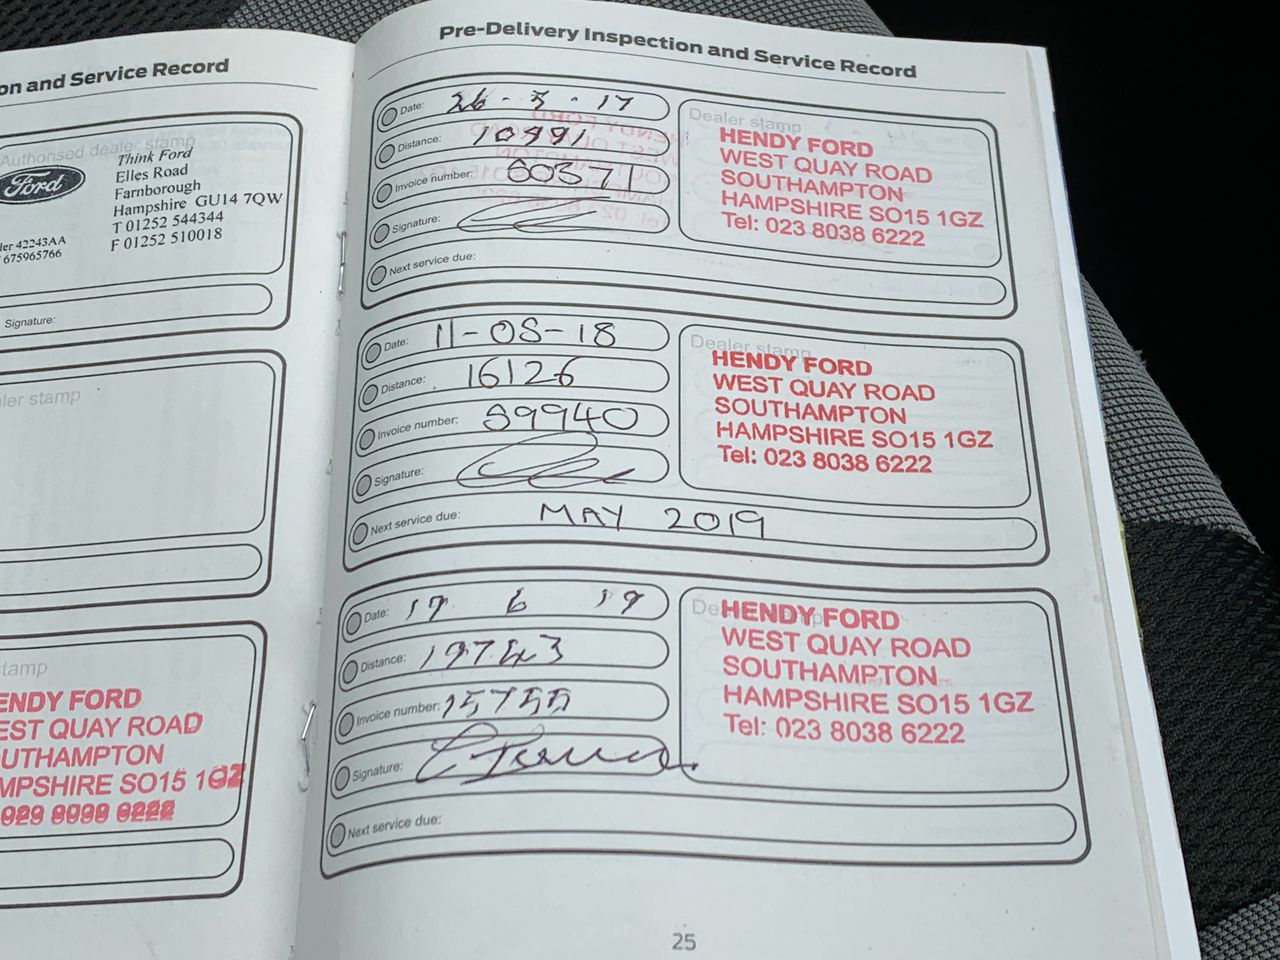 on and Service Record
Authorised dealer stamp
Ford
Think Ford
Elles Road
Farnborough
Hampshire GU14 7QW
T 01252 544344
F 01252 510018
ler 42243AA
675965766
Signature:
ler stamp
stamp
ENDY FORD
EST QUAY ROAD
UTHAMPTON
MPSHIRE SO15 1GZ
Pre-Delivery Inspection and Service Record
Date: 26-5-17
Distance: 10991
Invoice number: 6037
Signature:
Next service due:
Dealer stamp
HENDY FORD
WEST QUAY ROAD
SOUTHAMPTON
HAMPSHIRE SO15 1GZ
Tel: 023 8038 6222
Date: 11-05-18
Distance: 16126
Invoice number: 59940
Signature:
Next service due: MAY 2019
Dealer stamp
HENDY FORD
WEST QUAY ROAD
SOUTHAMPTON
HAMPSHIRE SO15 1GZ
Tel: 023 8038 6222
Date: 17 6 19
Distance: 19743
Invoice number: 15755
Signature:
Next service due:
HENDY FORD
WEST QUAY ROAD
SOUTHAMPTON
HAMPSHIRE SO15 1GZ
Tel: 023 8038 6222
25